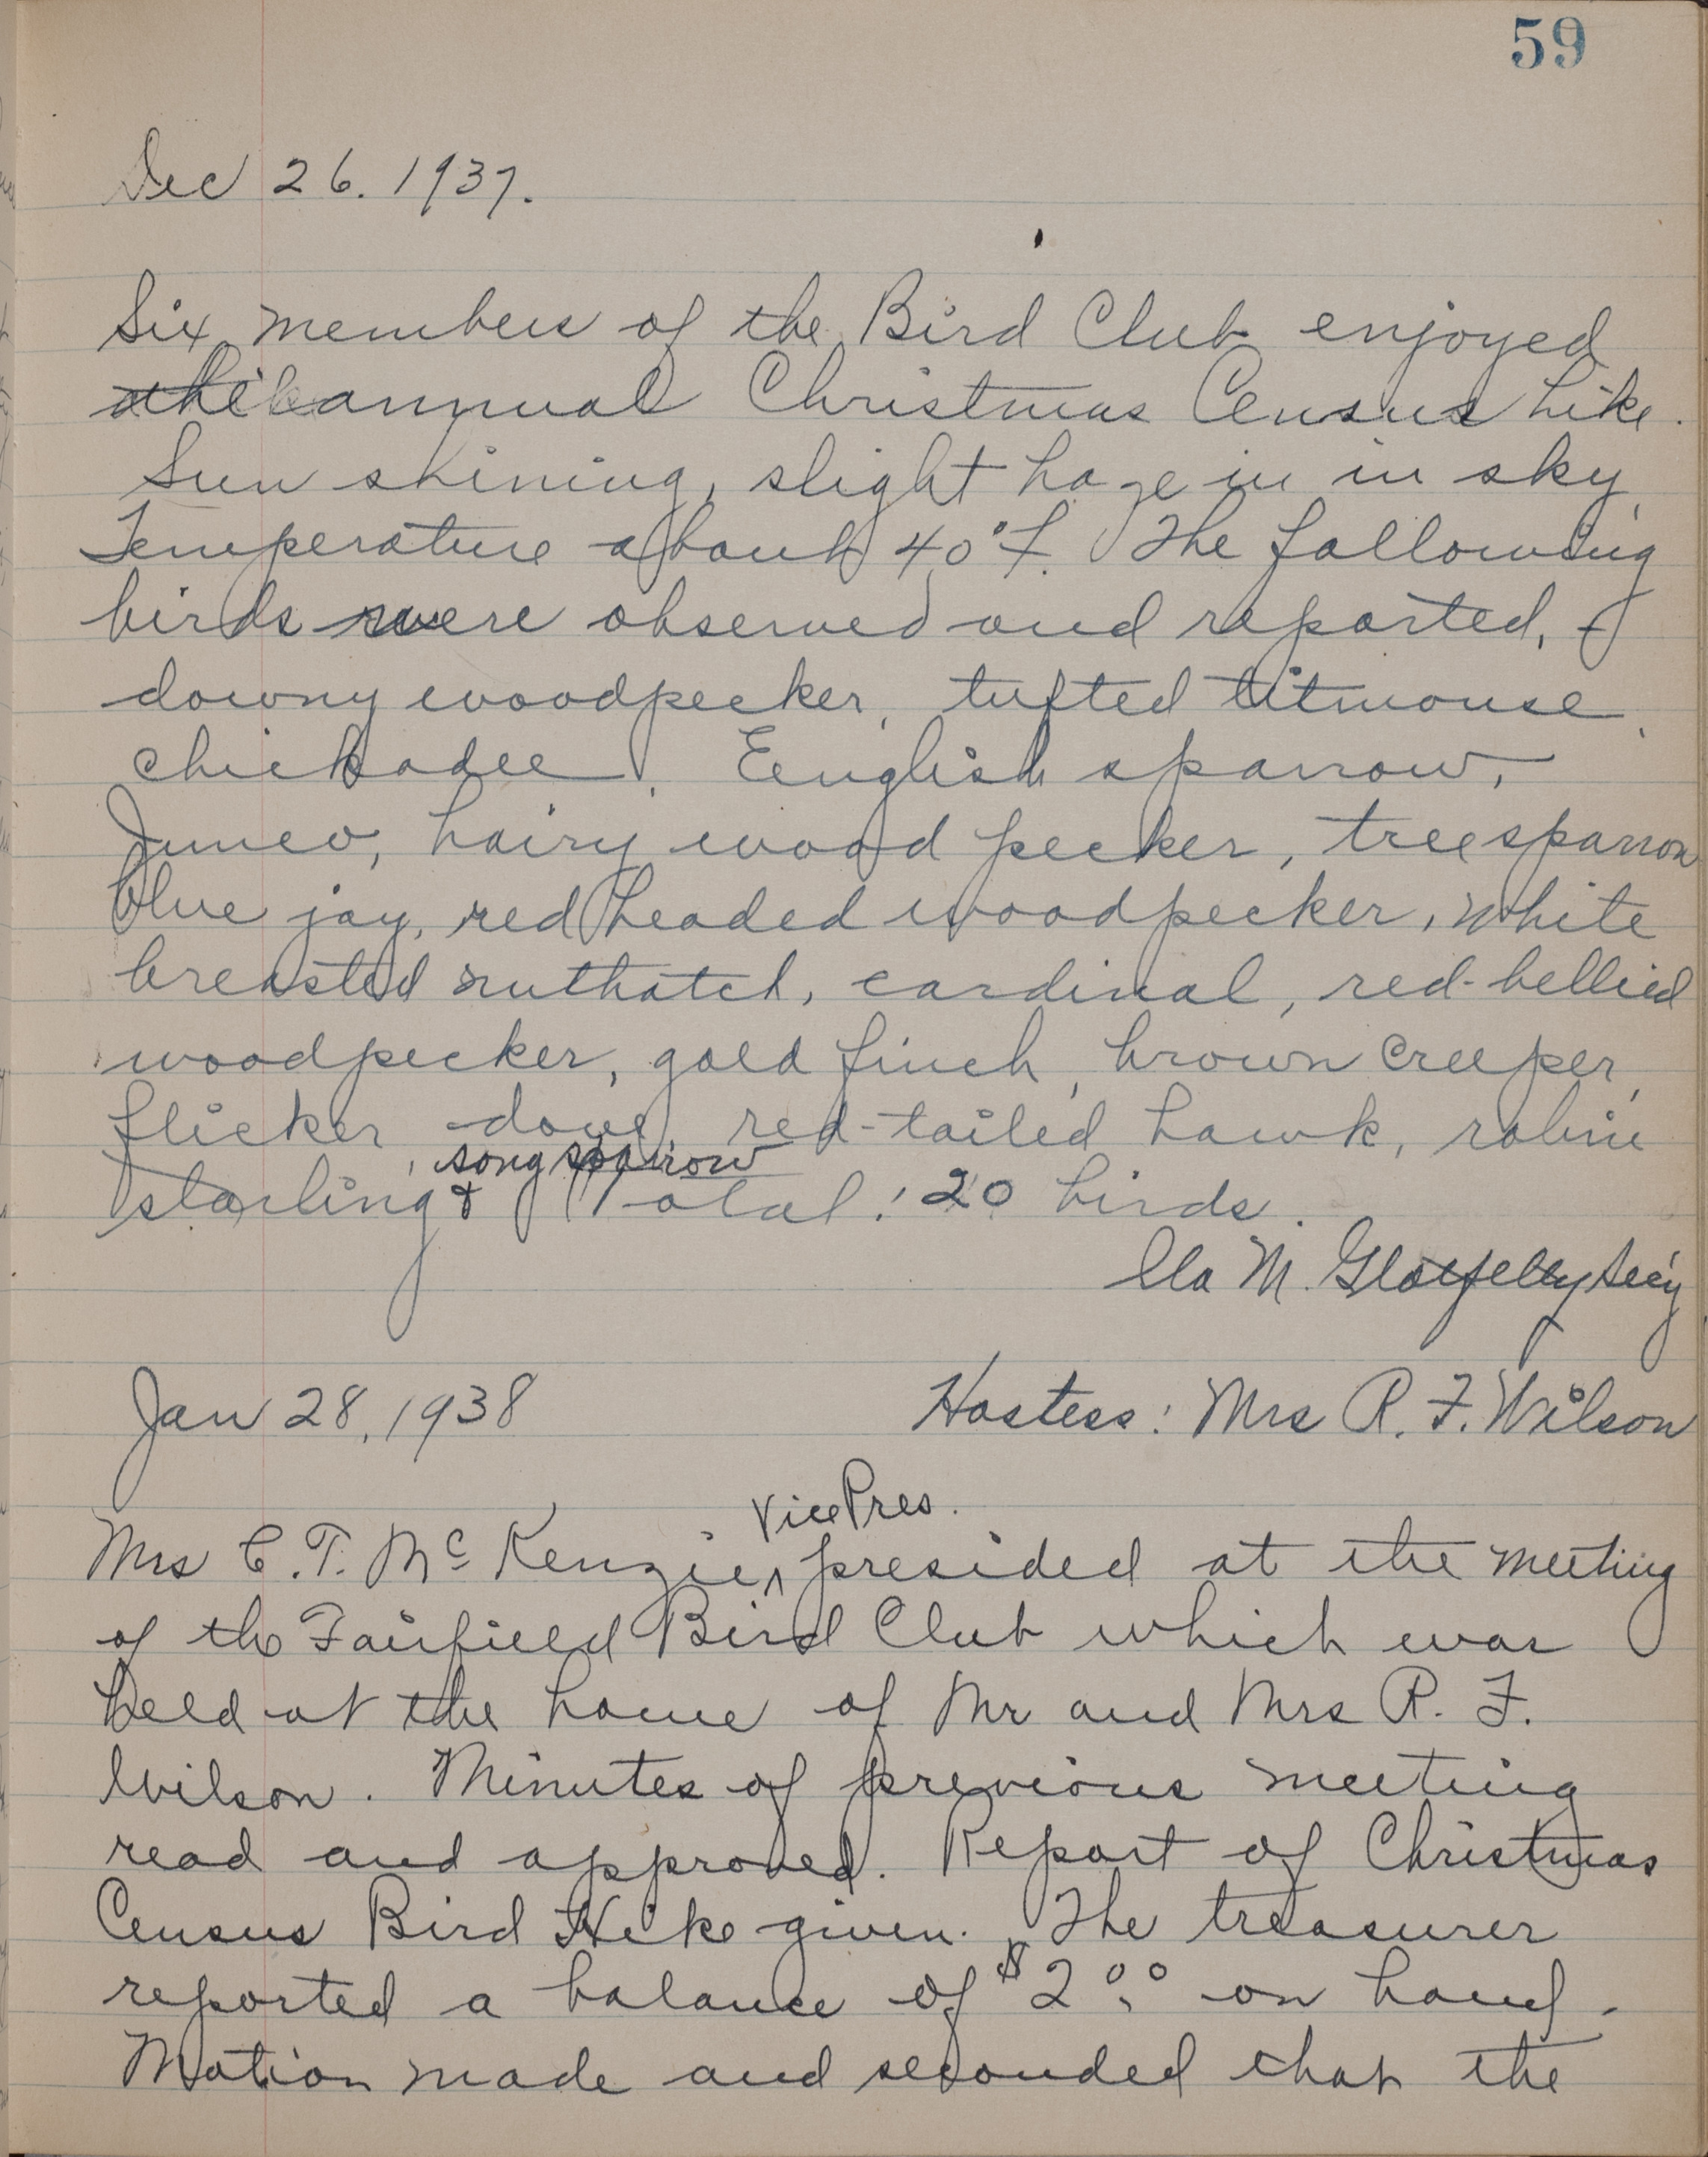 59
Dec 26. 1937.
Six members of the Bird Club enjoyed
the annual Christmas Census hike.
Sun shining, slight haze in in sky
Temperature about 40°F. The following
birds were observed and reported,
downy woodpecker, tufted titmouse,
chickadee, Eenglish sparrow,
Junco, hairy wood pecker, tree sparrow
blue jay, red headed woodpecker, white
breasted nuthatch, cardinal, red-bellied
woodpecker, gold finch, brown creeper,
flicker, dove, red-tailed hawk, robin
song sparrow
starling & Total: 20 birds.
Ila M. Glotfelty Sec'y
Jan 28, 1938 Hostess: Mrs R. F. Wilson
Vice Pres.
Mrs C. T. McKenzie ^ presided at the meeting
of the Fairfield Bird Club which was
held at the home of Mr and Mrs R. F.
Wilson. Minutes of previous meeting
read and approved. Report of Christmas
Census Bird Hike given. The treasurer
reported a balance of $2.00 on hand.
Motion made and seconded that the